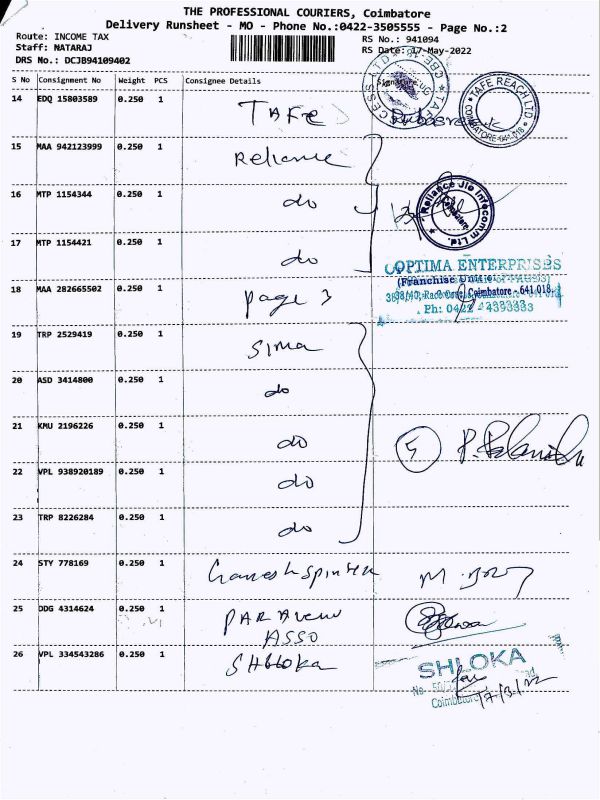 THE PROFESSIONAL COURIERS, Coimbatore
Delivery Runsheet - MO - Phone No.:0422-3505555 - Page No.:2
Route: INCOME TAX
RS No.: 941094
Staff: NATARAJ
RS Date: 17-May-2022
DRS No.: DCJB94109402
S No Consignment No Weight PCS Consignee Details Signature
14 EDQ 15803589 0.250 1 TAFE
TAFE REACH LTD
COIMBATORE-641 018
15 MAA 942123999 0.250 1 Reliance
16 MTP 1154344 0.250 1 do
Reliance Jio Infocomm Ltd.
Coimbatore
17 MTP 1154421 0.250 1 do
OPTIMA ENTERPRISES
(Franchise
18 MAA 282665502 0.250 1 page 3
Coimbatore - 641 018.
Ph: 0422 - 4393333
19 TRP 2529419 0.250 1 Sima
20 ASD 3414800 0.250 1 do
21 KMU 2196226 0.250 1 do
5
22 VPL 938920189 0.250 1 do
23 TRP 8226284 0.250 1 do
24 STY 778169 0.250 1 Ganesh
25 ODG 4314624 0.250 1 PAR
ASSO
26 VPL 334543286 0.250 1 Shloka
SHLOKA